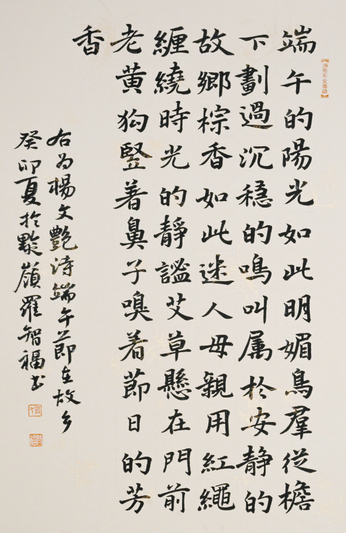 端午的陽光如此明媚鳥羣從檐
下劃過沉穩的鳴叫属於安静的
故鄉棕香如此迷人母親用紅繩
纏繞時光的静謐艾草懸在門前
老黄狗竪着鼻子嗅着節日的芳
香
右为楊文艷诗端午節在故乡
癸卯夏於黔嶺羅智福书